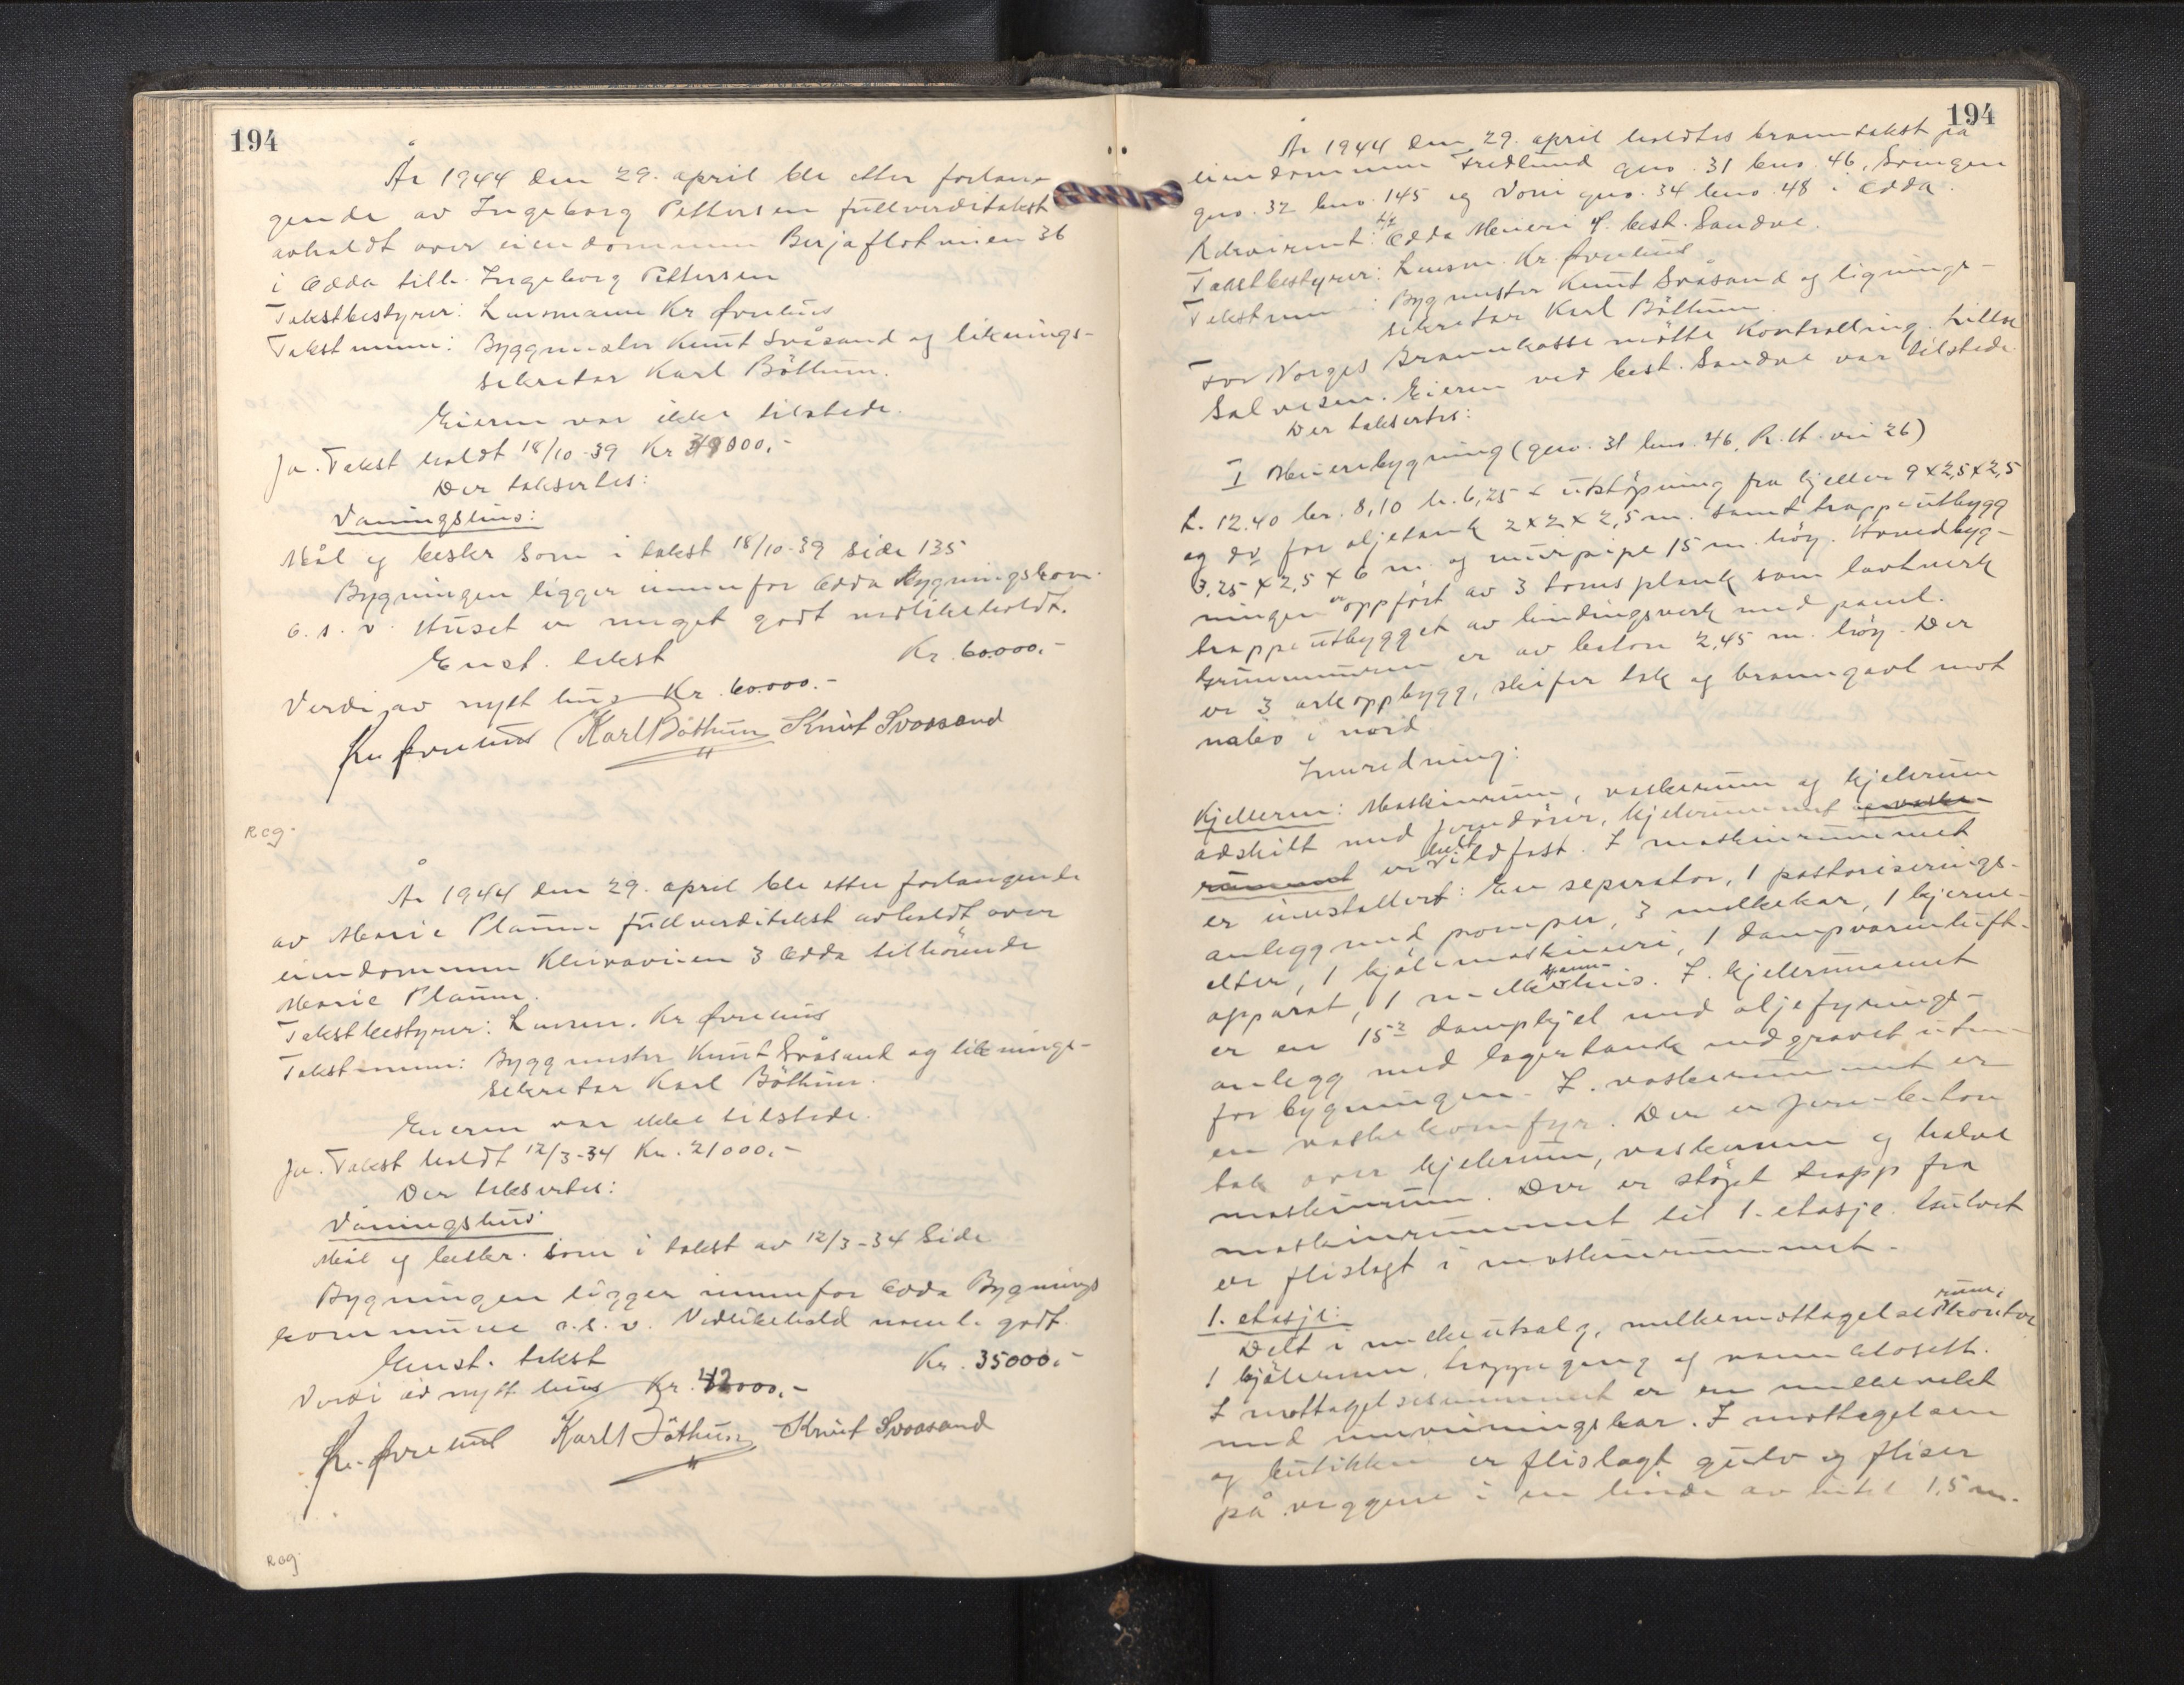 194
År 1944 den 29. april ble etter forlan-
gende av Ingeborg Pettersen fullverditakst
avholdt over eiendommen Berjaflotveien 36
i Odda tilh. Ingeborg Pettersen
Takstbestyrer: Lensmann Kr Øvrehus
Takstmenn: Byggmester Knut Svåsand og liknings-
sekretær Karl Böthun.
Eieren var ikke tilstede.
Ja. Takst holdt 18/10-39 Kr 000,-
Der taksertes:
Våningshus:
Mål og beskr som i takst 18/10-39 side 135
Bygningen ligger innenfor Odda Bygningskom.
o. s. v. Huset er meget godt vedlikeholdt.
Enst. takst Kr. 60.000.-
Verdi av nytt hus Kr. 60.000.-
Kr Øvrehus Karl Böthun Knut Svaasand
Reg.
År 1944 den 29. april ble etter forlangende
av Marie Plaum fullverditakst avholdt over
eiendommen Kleivavien 3 Odda tilhörende
Marie Plaum.
Takstbestyrer: Lensm. Kr Øvrehus
Takstmenn: Byggmester Knut Svåsand og liknings-
sekretær Karl Böthun.
Eieren var ikke tilstede.
Ja. Takst holdt 12/3-34 Kr. 21000.-
Der taksertes:
Våningshus
Mål og beskr. som i takst av 12/3-34 Side
Bygningen ligger innenfor Odda Bygnings
kommune o.s.v. Vedlikehold noenl. godt.
Enst. takst Kr. 35000.-
Verdi av nytt hus Kr. 42000.-
Kr. Øvrehus Karl Böthun Knut Svaasand
Reg.
194
År 1944 den 29. april holdtes branntakst på
eiendommen Fredlund gno. 31 bno. 46, Svingen
gno. 32 bno. 145 og Voni gno. 34 bno. 48 i Odda.
Rekvirent: Odda Meieri v. best. Sandve.
Takstbestyrer: Lensm. Kr. Øvrehus
Takstmenn: Bygmester Knut Svåsand og lignings-
sekretær Karl Böthun.
For Norges Brannkasse mötte Kontrolling. Lillo
Salvesen. Eieren ved best. Sandve var tilstede.
Der taksertes:
I Meieribygning (gno. 31 bno. 46, R. H. vei 26)
L. 12.40 br. 8,10 h. 6,25 + utstöpning fra kjeller 9 x 2,5 x 2,5
og do for oljetank 2 x 2 x 2,5 m. samt trappeutbygg
3.25 x 2,5 x 6 m. og murpipe 15 m. höy. Hovedbyg-
ningen er oppfört av 3 toms plank som laftverk
trappeutbygget av bindingsverk med panel.
Grunnmuren er av beton 2,45 m. höy. Der
er 3 arkoppbygg, skifer tak og branngavl mot
nabo i nord.
Innredning:
Kjelleren: Maskinrum, vaskerum og kjelerum
adskilt med jerndörer, kjelerummet og vaske-
rummet er helt ildfast. I maskinrummet
er innstallert: En seperator, 1 pastoriserings-
anlegg med pomper, 3 melkekar, 1 kjerne-
elter, 1 kjölemaskineri, 1 dampvarmluft-
apparat, 1 melke spann-hus. I kjelerummet
er en 15² dampkjel med oljefyrings-
anlegg med lagertank nedgravet uten-
for bygningen. I vaskerummet er
en vaskekomfyr. Der er jern-beton
tak over kjelerum, vaskerum og halve
maskinrum. Der er stöpt trapp fra
maskinrummet til 1. etasje. Gulvet
er flislagt i maskinrummet.
1. etasje:
Delt i melkeutsalg, melkemottagelsesrum, kontor
1 kjölerum, trappegang og vannclosett.
I mottagelsesrummet er en melkevekt
med innveiningskar. I mottagelsen
og butikken er flislagt gulv og fliser
på veggene i en höide av inntil 1,5 m.